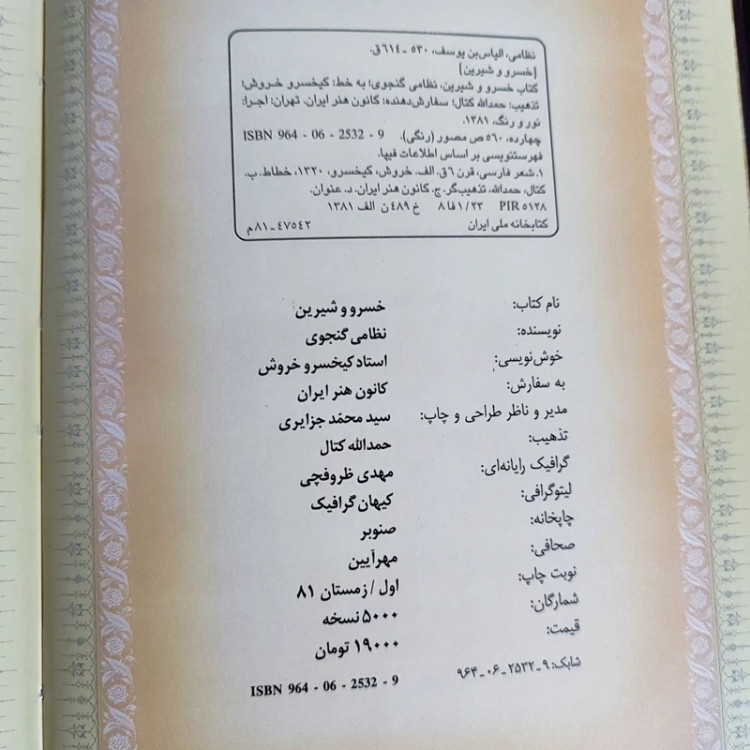 نظامی، الیاس‌بن یوسف، ۵۳۰ ـ ۶۱۴ق.
[خسرو و شیرین]
کتاب خسرو و شیرین، نظامی گنجوی؛ به خط: کیخسرو خروش؛
تذهیب: حمدالله کتال؛ سفارش‌دهنده: کانون هنر ایران. تهران: اجرا:
نور و رنگ، ۱۳۸۱.
چهارده، ۵۶۰ ص مصور (رنگی). ISBN 964 - 06 - 2532 - 9
فهرستنویسی بر اساس اطلاعات فیپا.
۱. شعر فارسی، قرن ۶ق. الف. خروش، کیخسرو، ۱۳۲۰، خطاط. ب.
کتال، حمدالله، تذهیب‌گر. ج. کانون هنر ایران. د. عنوان.
PIR ۵۱۲۸ ۸فا۱/۲۳ خ ۴۸۹ن الف ۱۳۸۱
کتابخانه ملی ایران ۴۷۵۴۲ـ۸۱م
نام کتاب: خسرو و شیرین
نویسنده: نظامی گنجوی
خوش‌نویسی: استاد کیخسرو خروش
به سفارش: کانون هنر ایران
مدیر و ناظر طراحی و چاپ: سید محمّد جزایری
تذهیب: حمدالله کتال
گرافیک رایانه‌ای: مهدی ظروفچی
لیتوگرافی: کیهان گرافیک
چاپخانه: صنوبر
صحافی: مهرآیین
نوبت چاپ: اول / زمستان ۸۱
شمارگان: ۵۰۰۰ نسخه
قیمت: ۱۹۰۰۰ تومان
شابک: ۹ـ۲۵۳۲ـ۰۶ـ۹۶۴
ISBN 964 - 06 - 2532 - 9